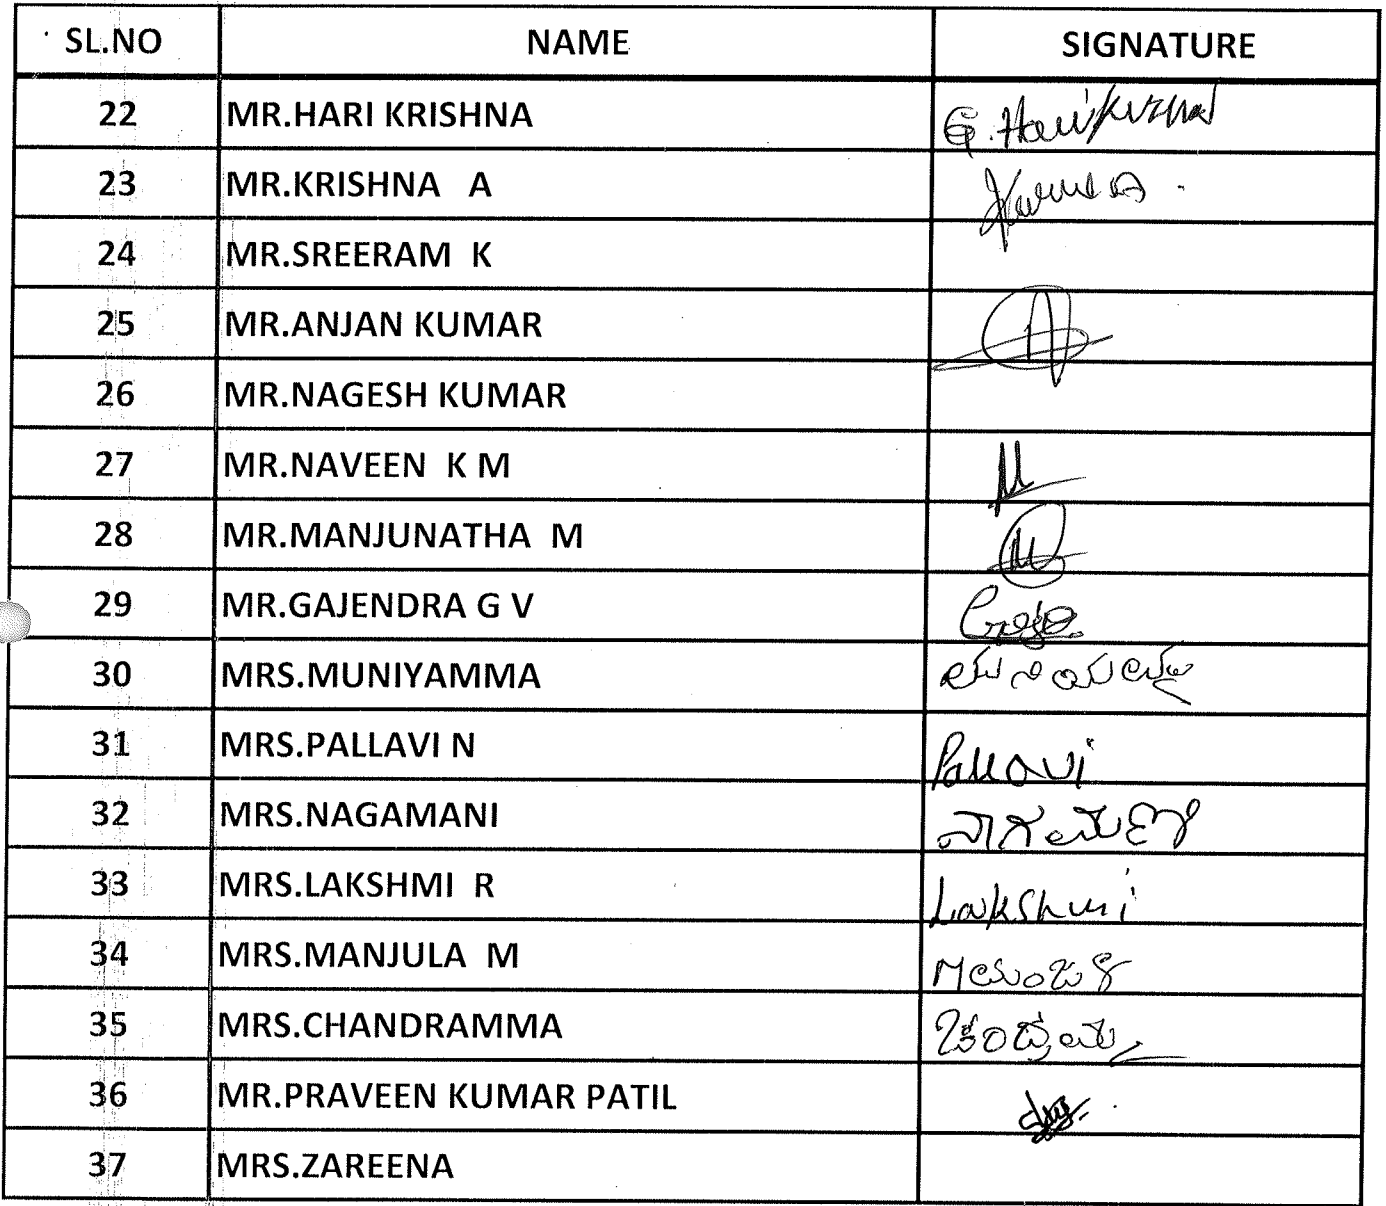 SL.NO NAME SIGNATURE
22 MR.HARI KRISHNA G.Harikrishna
23 MR.KRISHNA A
24 MR.SREERAM K
25 MR.ANJAN KUMAR
26 MR.NAGESH KUMAR
27 MR.NAVEEN K M
28 MR.MANJUNATHA M
29 MR.GAJENDRA G V
30 MRS.MUNIYAMMA ಮುನಿಯಮ್ಮ
31 MRS.PALLAVI N Pallavi
32 MRS.NAGAMANI ನಾಗಮಣಿ
33 MRS.LAKSHMI R Lakshmi
34 MRS.MANJULA M
35 MRS.CHANDRAMMA ಚಂದ್ರಮ್ಮ
36 MR.PRAVEEN KUMAR PATIL
37 MRS.ZAREENA